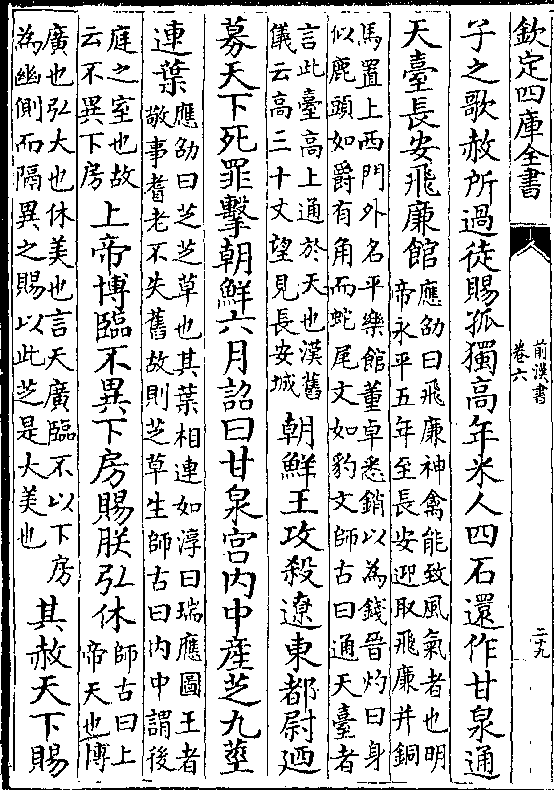 欽定四庫全書
前漢書
卷六
二十九
子之歌赦所過徒賜孤獨高年米人四石還作甘泉通
天臺長安飛廉館
應劭曰飛廉神禽能致風氣者也明
帝永平五年至長安迎取飛廉并銅
馬置上西門外名平樂館董卓悉銷以為錢晉灼曰身
似鹿頭如爵有角而蛇尾文如豹文師古曰通天臺者
言此臺高上通於天也漢舊
儀云高三十丈望見長安城
朝鮮王攻殺遼東都尉廼
募天下死罪擊朝鮮六月詔曰甘泉宮内中產芝九莖
連葉
應劭曰芝芝草也其葉相連如淳曰瑞應圖王者
敬事耆老不失舊故則芝草生師古曰内中謂後
庭之室也故
云不異下房
上帝博臨不異下房賜朕弘休
師古曰上
帝天也博
廣也弘大也休美也言天廣臨不以下房
為幽側而隔異之賜以此芝是大美也
其赦天下賜